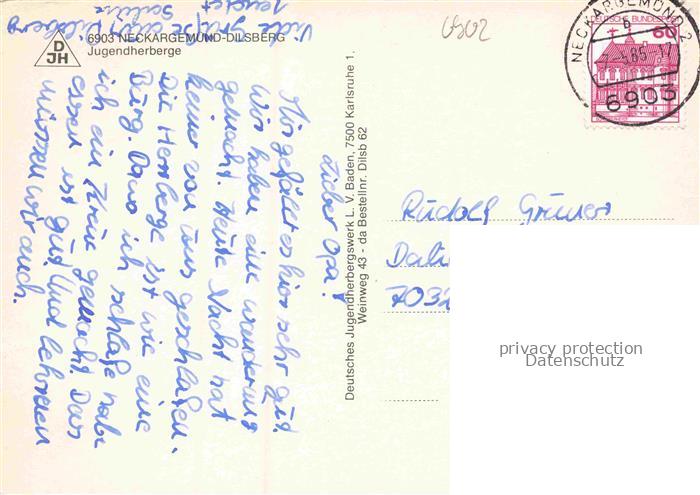 6903 NECKARGEMÜND-DILSBERG
Jugendherberge
DJH
Lieber Opa!
Mir gefällt es hier sehr gut.
Wir haben eine wanderung
gemacht. Heute Nacht hat
keiner von uns geschlafen.
Die Herberge ist wie eine
Burg. Dawo ich schlafe habe
ich ein gemacht. Das
essen ist gut. Und lehrnen
müssen wir auch.
Viele Grüße aus Dilsberg
sendet
Deutsches Jugendherbergswerk L. V. Baden, 7500 Karlsruhe 1.
Weinweg 43 - da Bestellnr. Dilsb 62
0502
DEUTSCHE BUNDESPOST
60
NECKARGEMÜND 2
b
-5.85-17
6903
Rudolf Grüner
703
privacy protection
Datenschutz